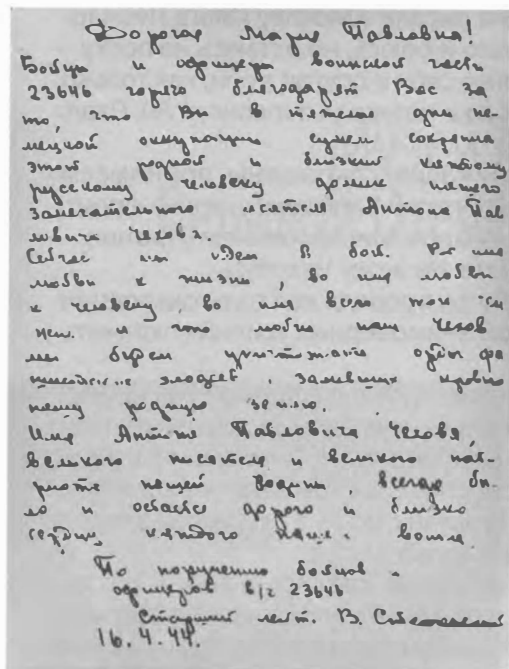 Дорогая Мария Павловна!
Бойцы и офицеры воинской части
23646 горячо благодарят Вас за
то, что Вы в тяжелые дни не-
мецкой оккупации сумели сохранить
этот родной и близкий каждому
русскому человеку домик нашего
замечательного писателя Антона Пав
ловича Чехова.
Сейчас мы идем в бой. Во имя
любви к жизни, во имя любви
к человеку, во имя всего того чем
жил и что любил наш Чехов
мы будем уничтожать орды фа
шистских злодеев, заливших кровью
нашу родную землю.
Имя Антона Павловича Чехова,
великого писателя и великого пат-
риота нашей Родины, всегда бы-
ло и остается дорого и близко
сердцу каждого наше. воина.
По поручению бойцов и
офицеров в/ч 23646
Старший лейт. В.
16.4.44.